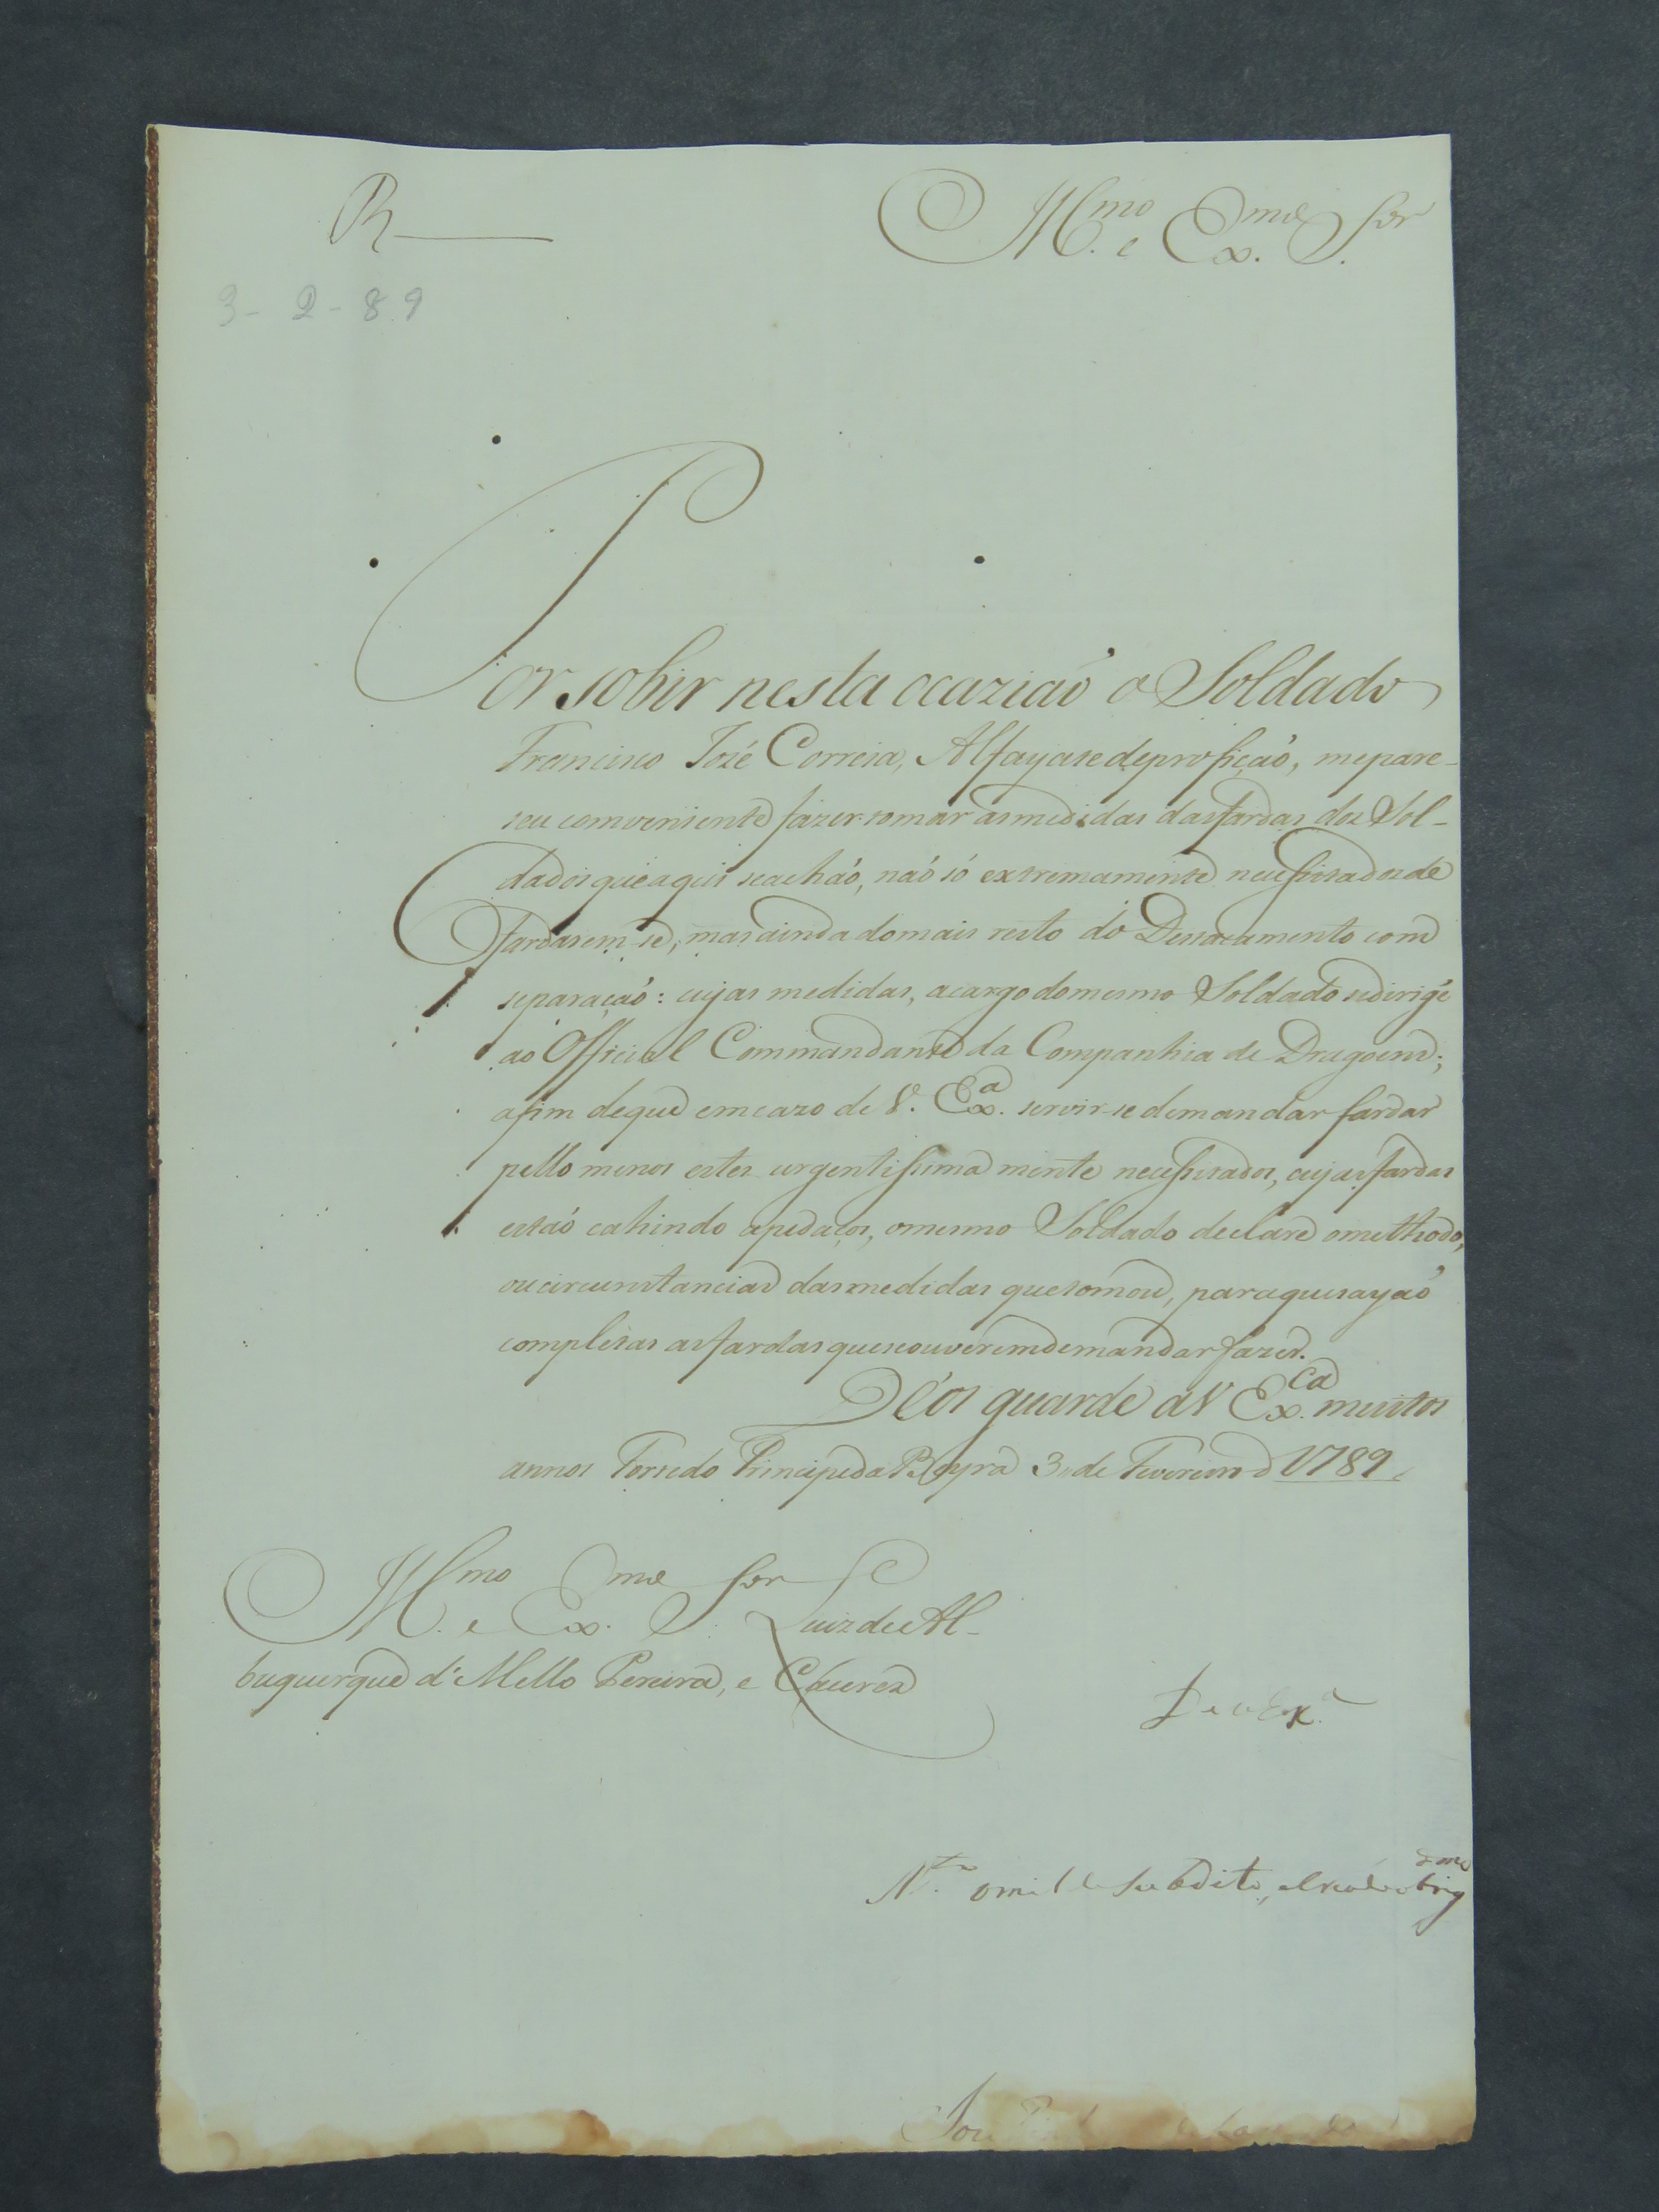 R
Ill.mo e Ex.mo S.or
3 - 2 - 89
Por sobir nesta ocaziaó o Soldado
Francisco José Correia, Alfayate de profiçaó, me pare-
seu comveniente fazer tomar as medidas das fardas dos Sol-
dados que aqui se achaó, naó só extremamente necessitados de
fardarem-se, mas ainda do mais resto do Destacamento com
separaçaó: cujas medidas, a cargo do mesmo Soldado se dirige
ao Official Commandante da Companhia de Dragoens;
afim de que em cazo de V. Ex.a servir-se de mandar fardar
pello menos estes urgentissima mente necessitados, cujas fardas
estaó cahindo a pedaços, o mesmo Soldado declare o methodo,
ou circunstancias das medidas que tomou, para que sayaó
completas as fardas que se ouverem de mandar fazer.
Deos guarde a V Ex.ca muitos
annos Forte do Principe da Beyra 3 de Fevereiro d 1789
Ill.mo e Ex.mo S.or Luiz de Al-
buquerque d' Mello Pereira, e Caceres
De V Ex.a
M.to omilde Subdito, e
Joze